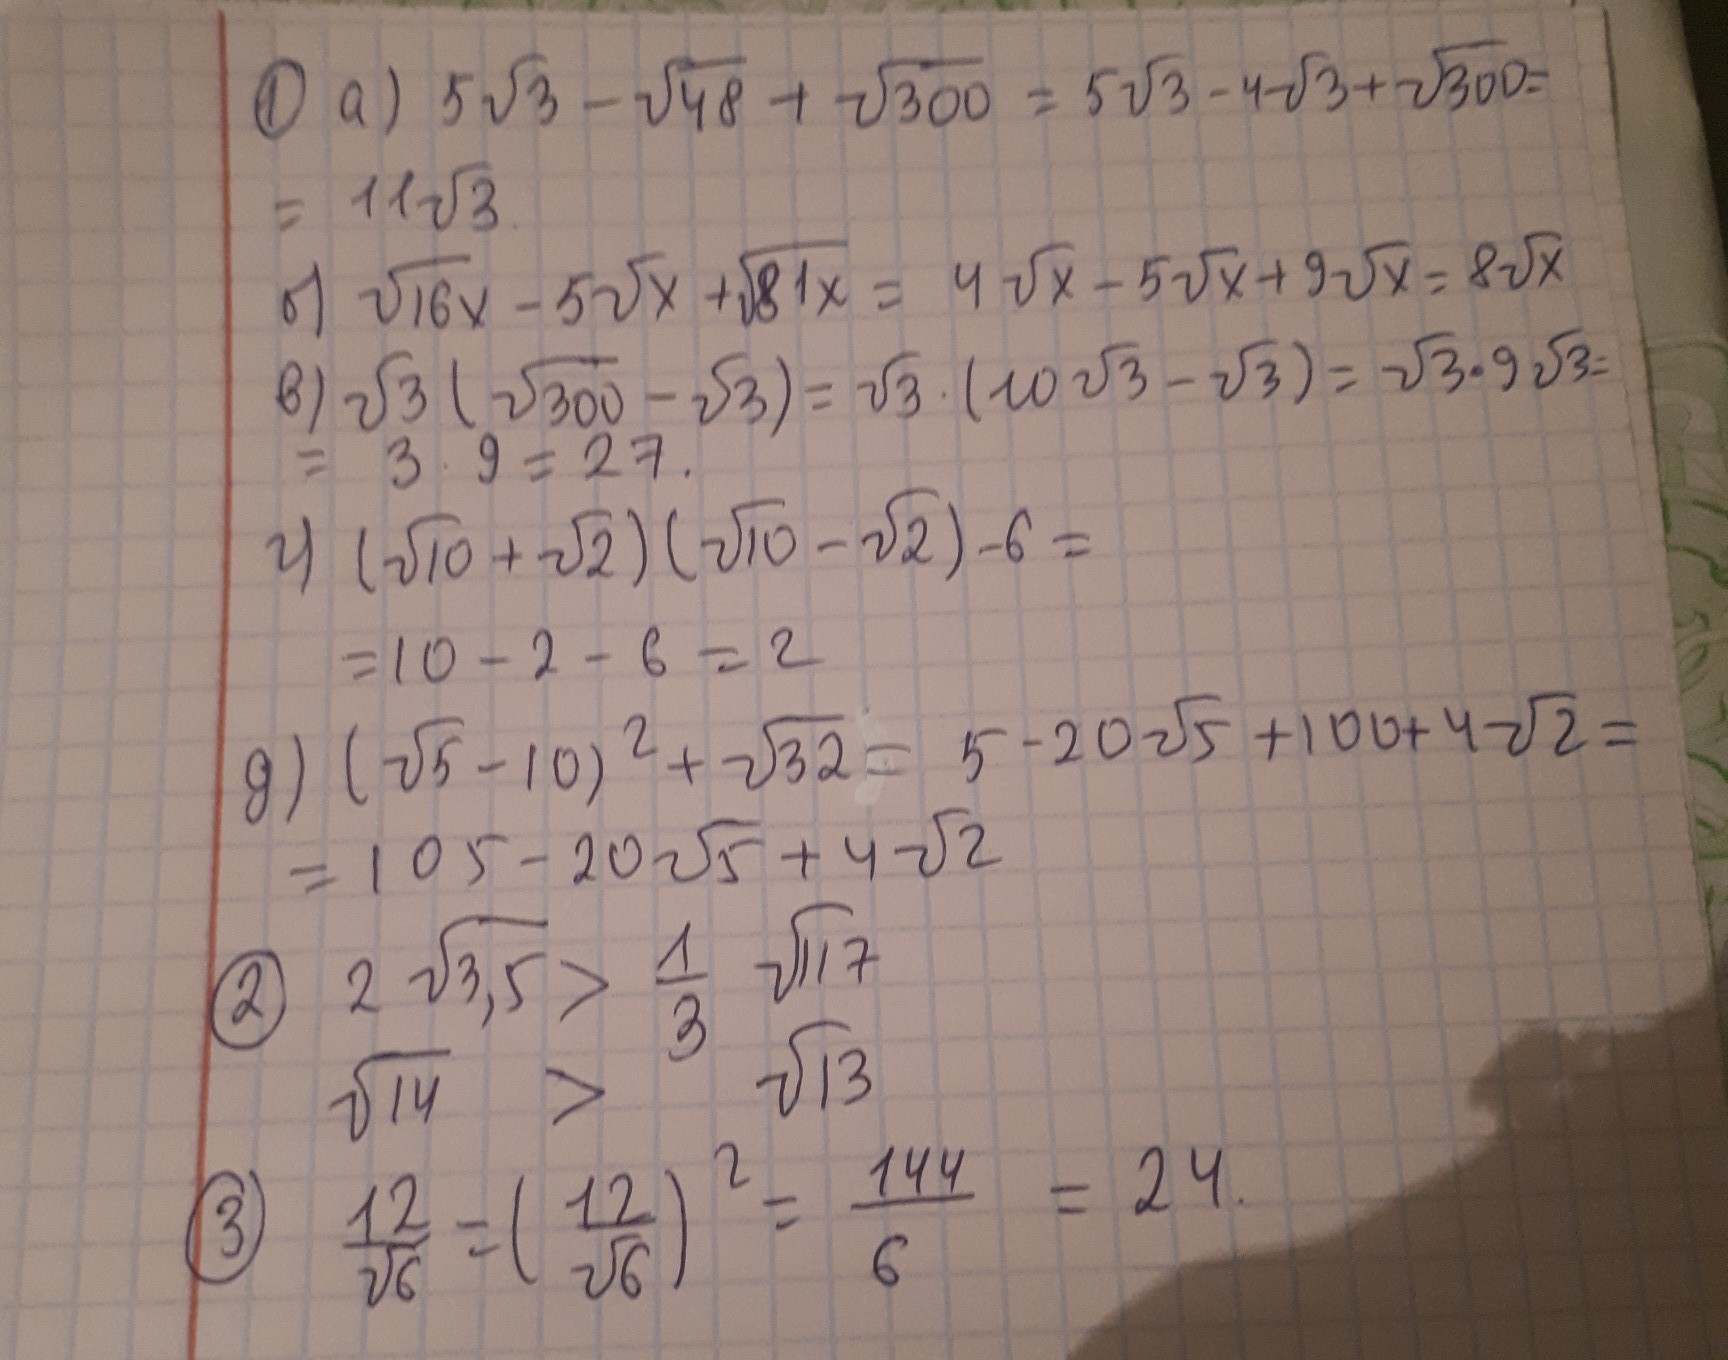 ① а) 5√3 − √48 + √300 = 5√3 − 4√3 + √300 =
= 11√3.
б) √16x − 5√x + √81x = 4√x − 5√x + 9√x = 8√x
в) √3(√300 − √3) = √3 · (10√3 − √3) = √3 · 9√3 =
= 3 · 9 = 27.
г) (√10 + √2)(√10 − √2) − 6 =
= 10 − 2 − 6 = 2
д) (√5 − 10)² + √32 = 5 − 20√5 + 100 + 4√2 =
= 105 − 20√5 + 4√2
② 2√3,5 > 1/3 √117
√14 > √13
③ 12/√6 = (12/√6)² = 144/6 = 24.